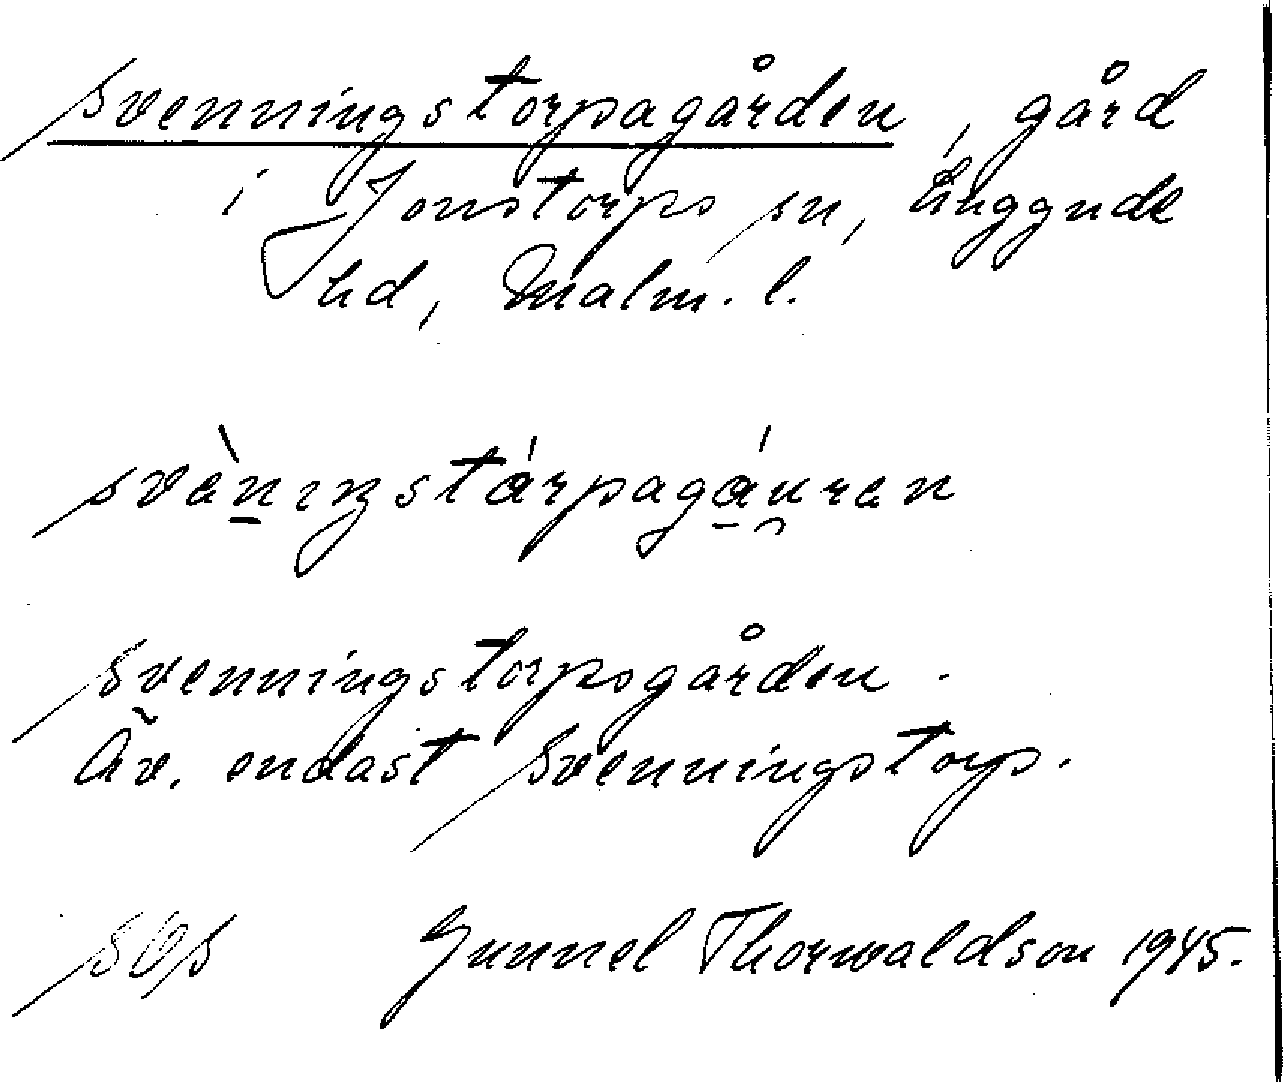 Svenningstorpagården, gård
i Jonstorps sn, Luggude
hd, Malm. l.
Svenningstorpsgården.
Äv. endast Svenningstorp.
Gunnel Thorwaldson 1945.